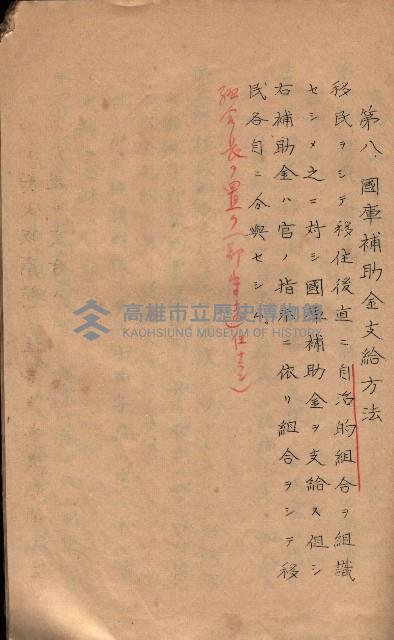 第八、國庫補助金支給方法
移民ヲシテ移住後直ニ自治的組合ヲ組識
セシメ之ニ対シ國庫補助金ヲ支給ス但シ
右補助金ハ官ノ指示ニ依リ組合ヲシテ移
民各自ニ分與セシム
組合長ヲ置ク
高雄市立歷史博物館
KAOHSIUNG MUSEUM OF HISTORY